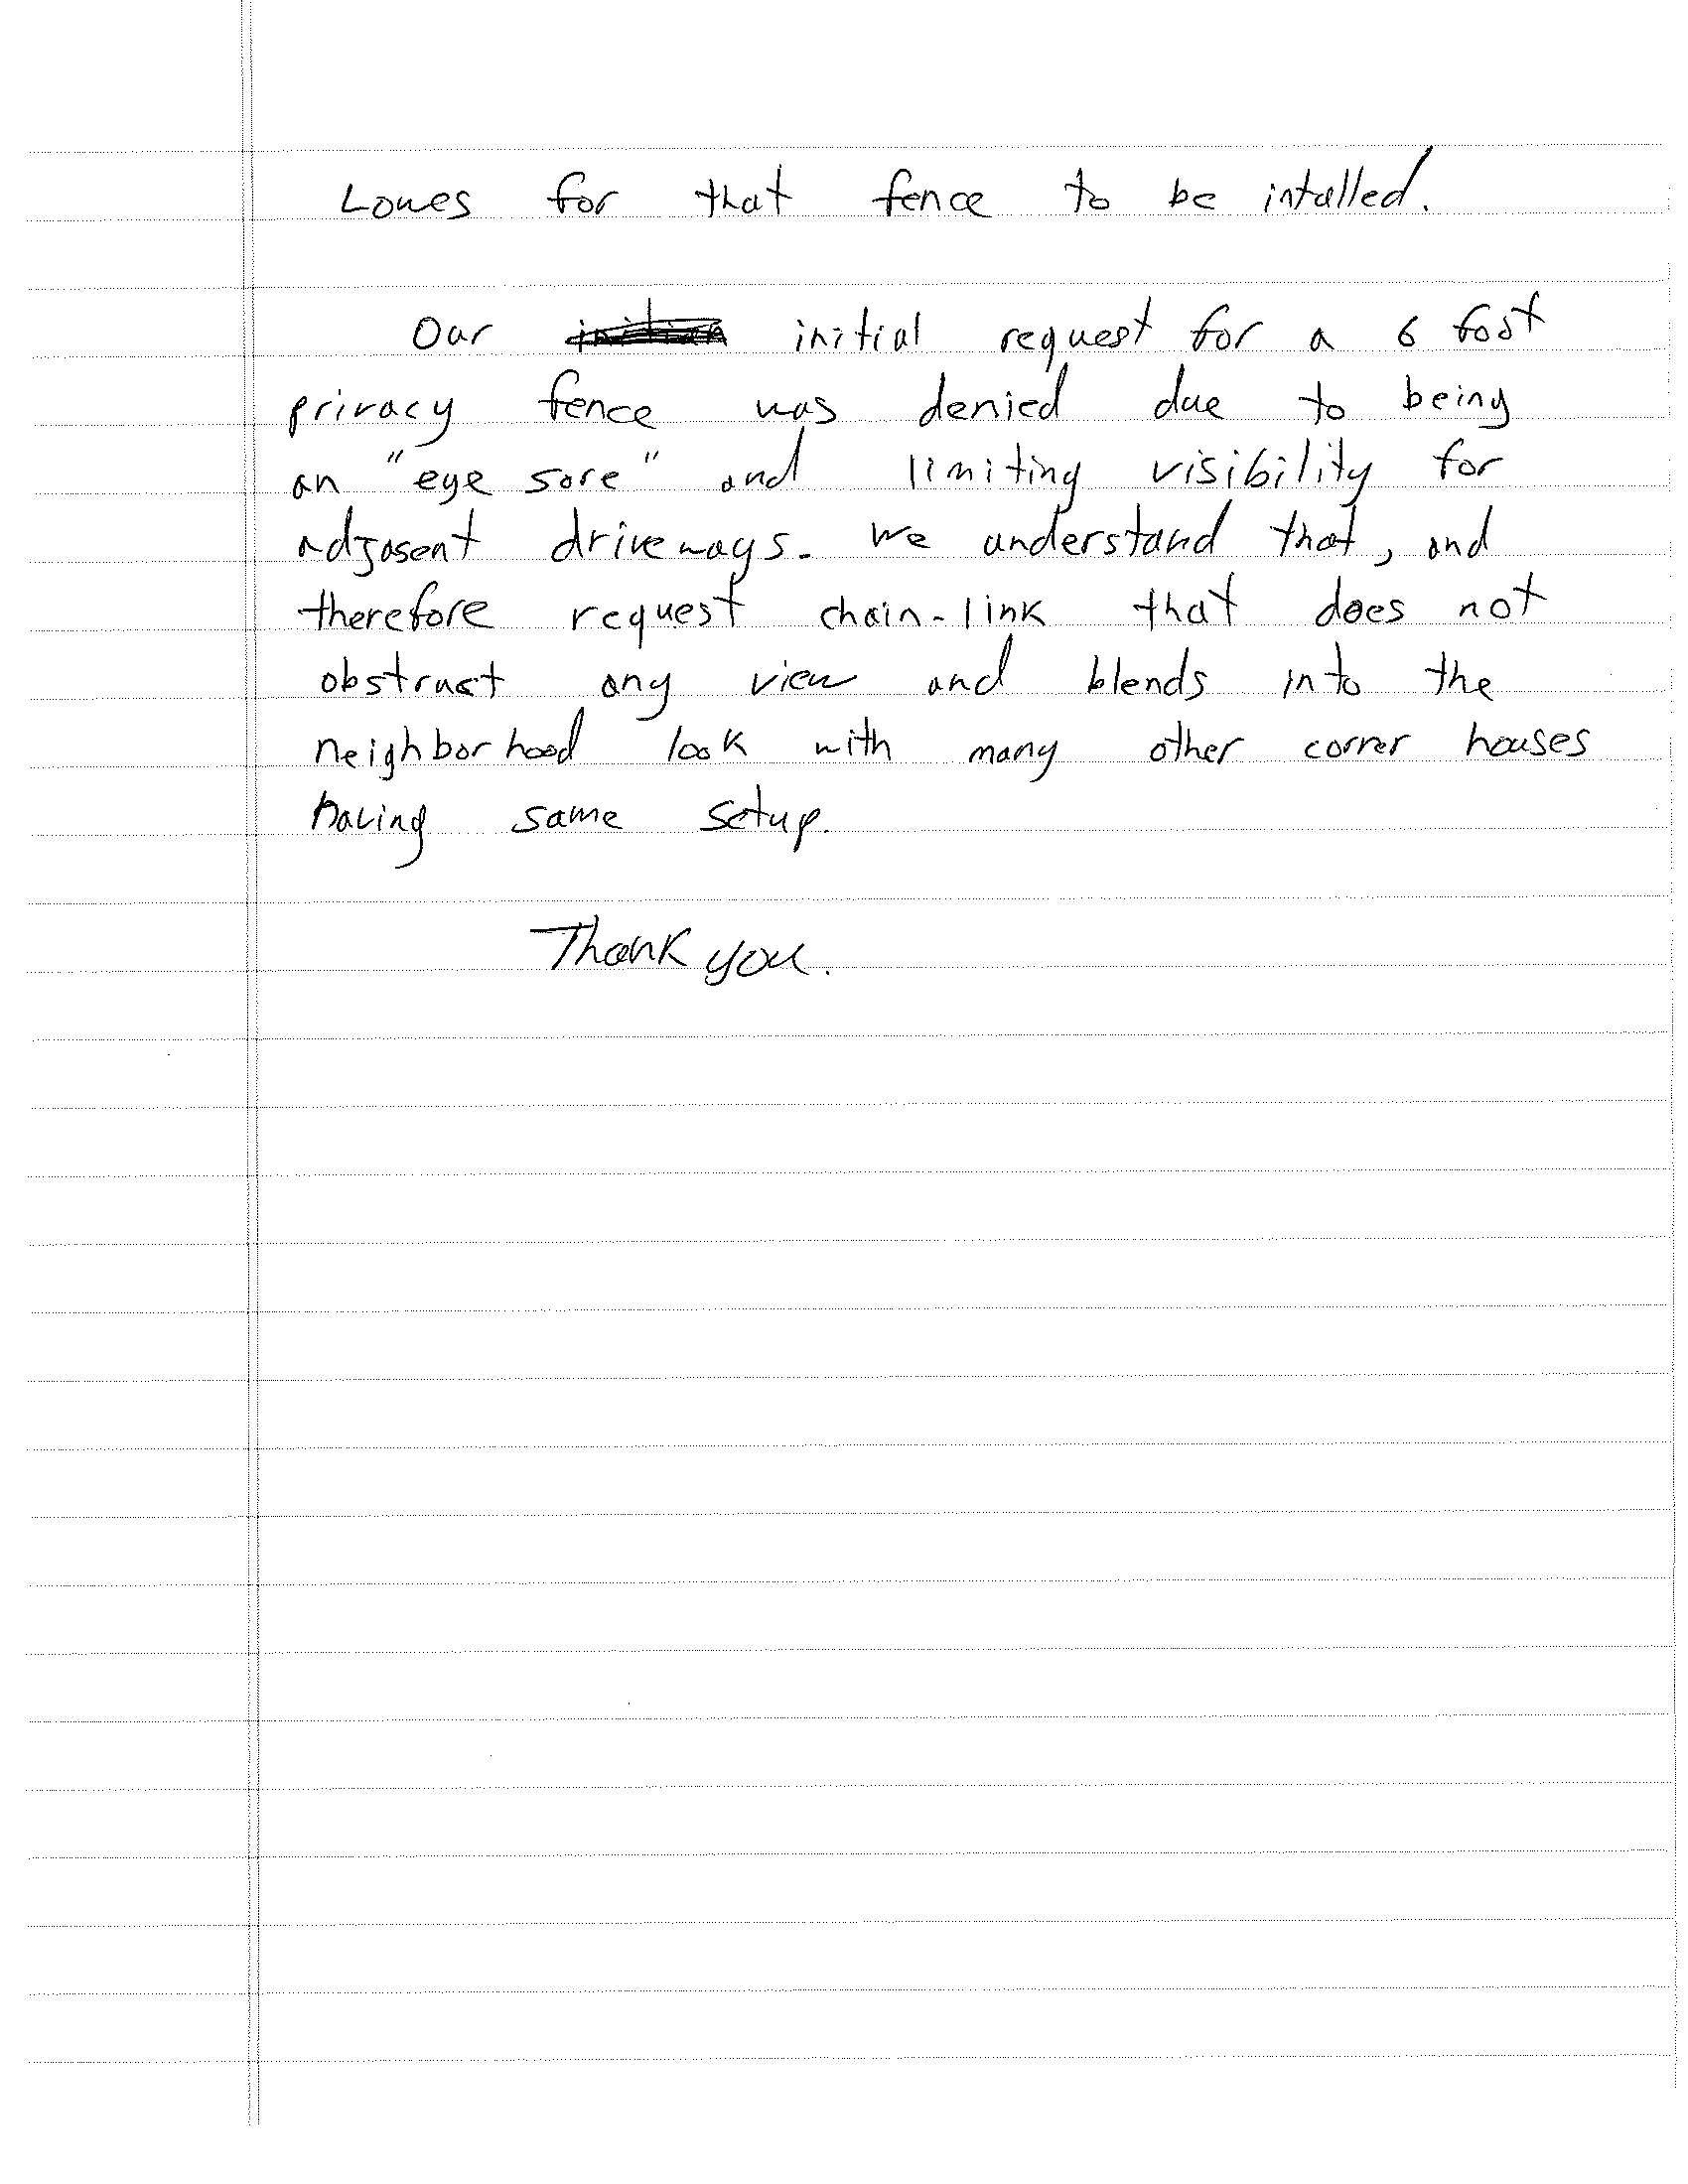 Lowes for that fence to be intalled.
Our initial request for a 6 foot
privacy fence was denied due to being
an "eye sore" and limiting visibility for
adjasent driveways. We understand that, and
therefore request chain-link that does not
obstruct any view and blends into the
neighborhood look with many other corner houses
having same setup.
Thank you.